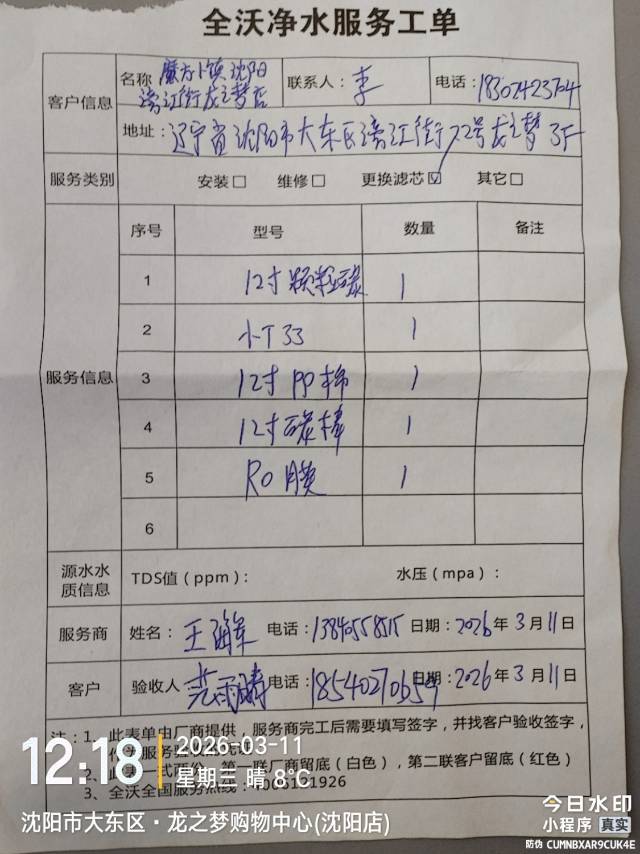 全沃净水服务工单
客户信息
名称 魔方小镇沈阳
滂江街龙之梦店
联系人：李
电话：18302423704
地址：辽宁省沈阳市大东区滂江街22号龙之梦3F
服务类别 安装□ 维修□ 更换滤芯☑ 其它□
服务信息
序号 型号 数量 备注
1 12寸颗粒碳 1
2 小T33 1
3 12寸PP棉 1
4 12寸碳棒 1
5 RO膜 1
6
源水水质信息 TDS值（ppm）： 水压（mpa）：
服务商 姓名： 电话：13840558515 日期：2026年3月11日
客户 验收人 电话：18540270659 日期：2026年3月11日
注：1、此表单由厂商提供，服务商完工后需要填写签字，并找客户验收签字，
第一联厂商留底（白色），第二联客户留底（红色）
3、全沃全国服务热线：
12:18
2026-03-11
星期三 晴 8℃
沈阳市大东区·龙之梦购物中心(沈阳店)
今日水印
小程序 真实
防伪 CUMNBXAR9CUK4E